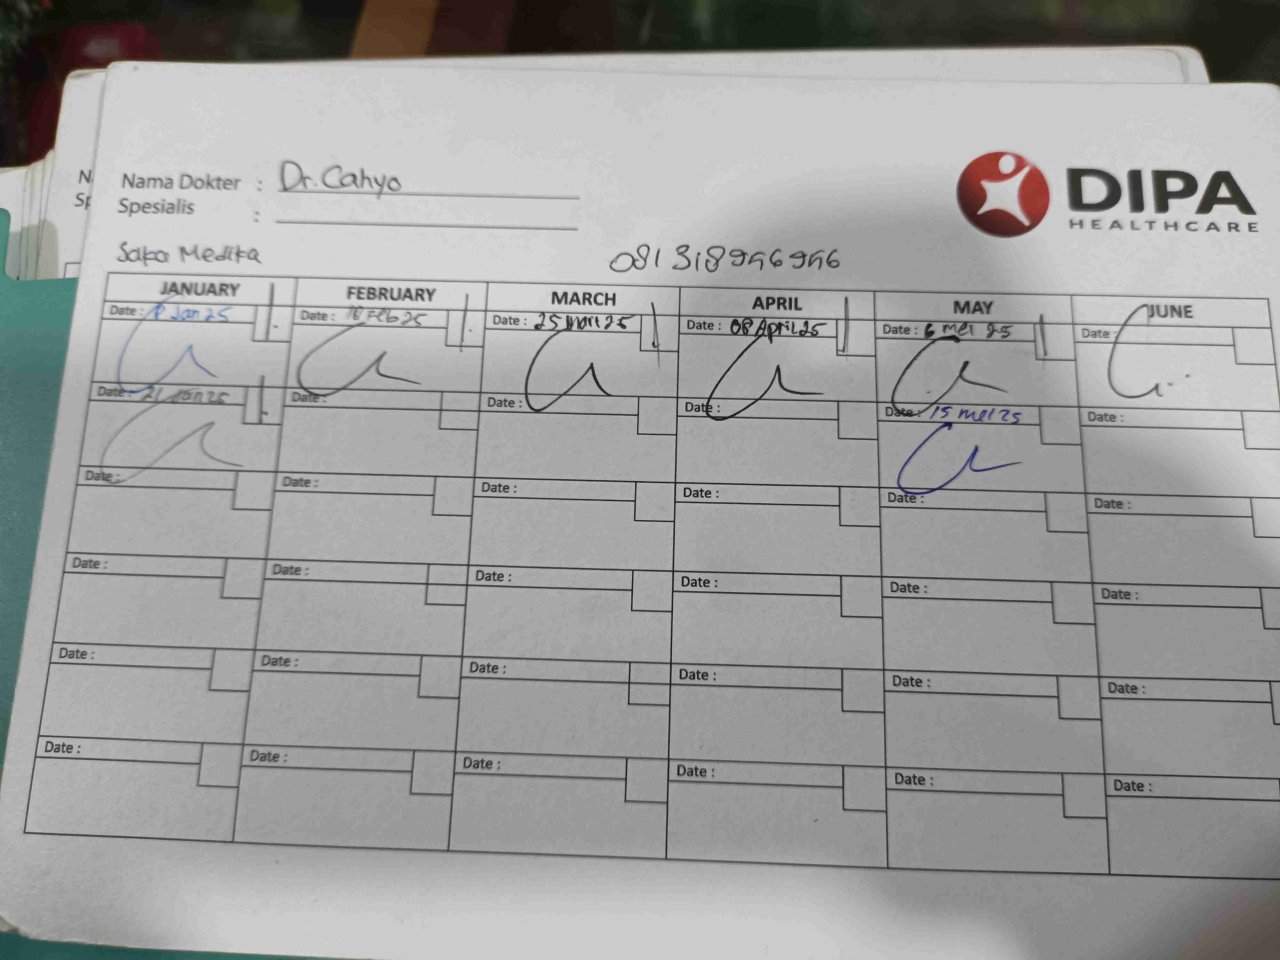 Nama Dokter : Dr. Cahyo
Spesialis :
DIPA
HEALTHCARE
Medika
081318946946
JANUARY FEBRUARY MARCH APRIL MAY JUNE
Date : 8 Jan 25 Date : 18 Feb 25 Date : 25 Mart 25 Date : 08 April 25 Date : 6 mei 25 Date :
Date : 21 Jan 25 Date : Date : Date : Date : 15 mei 25 Date :
Date : Date : Date : Date : Date : Date :
Date : Date : Date : Date : Date : Date :
Date : Date : Date : Date : Date : Date :
Date : Date : Date : Date : Date : Date :